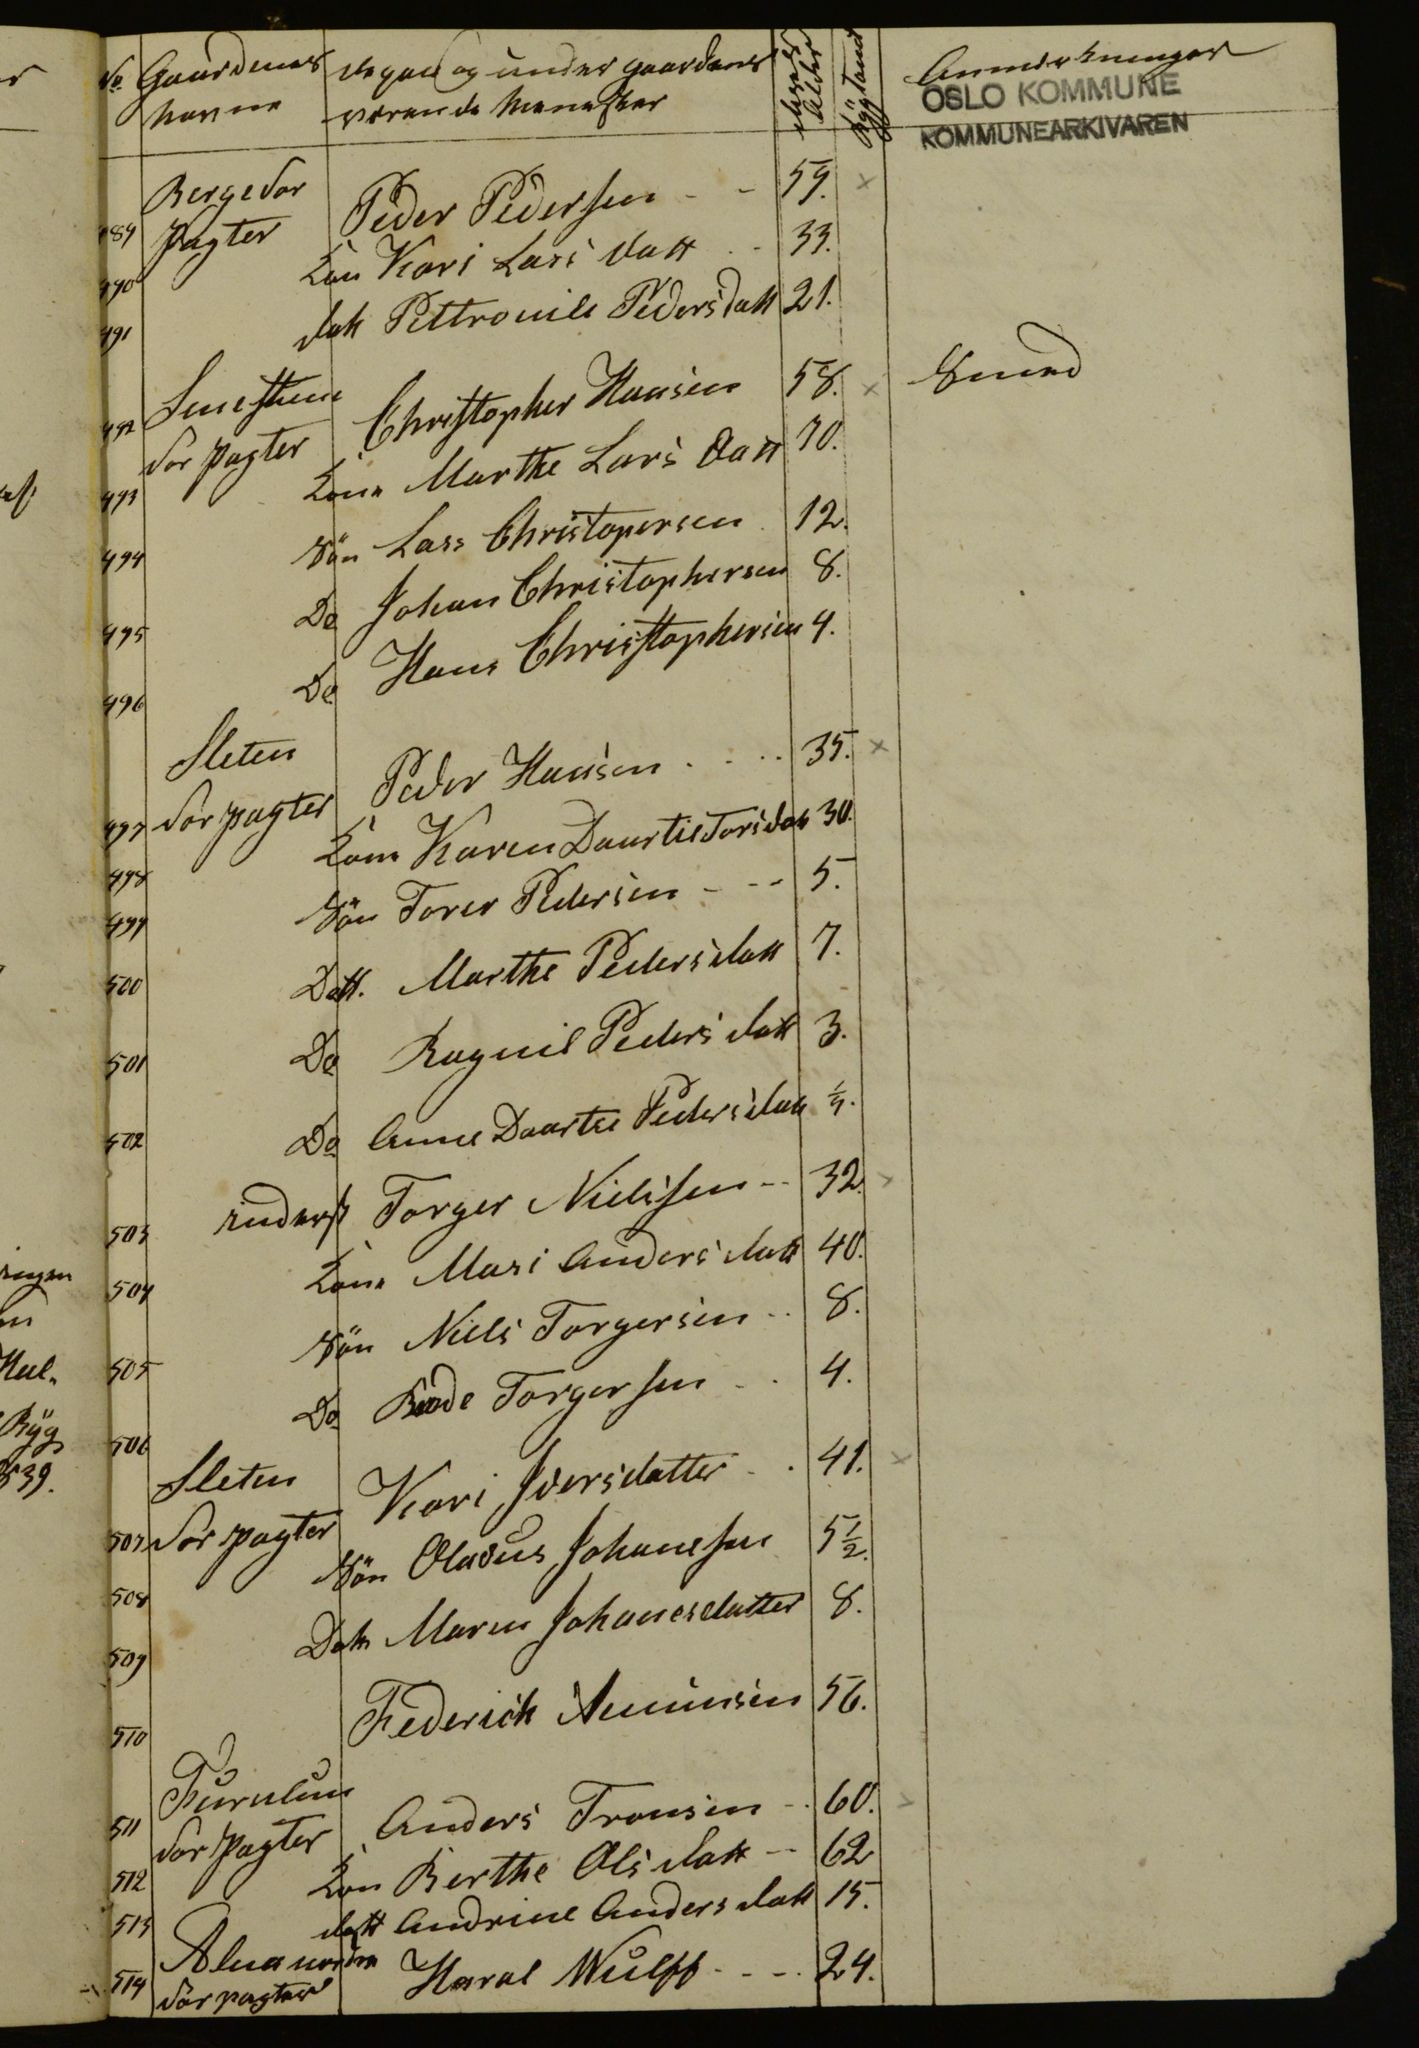 No Gaardenes Navne
depaa og under gaardens værende Mennesker
deres Alder
Bÿgstand
Anmerkninger
OSLO KOMMUNE
KOMMUNEARKIVAREN
489 Berge For pagter Peder Pedersen - - 59. x
490 Kon Kari Lars Datt - - 33.
491 datt Pettronile Pedersdatt 21.
492 Smestuen For pagter Christopher Hansen 58. x Smed
493 Kone Marthe Lars Datt 70.
494 Sön Lars Christopersen . 12.
495 Do Johan Christophersen 8.
496 Do Hans Christophersen 4.
497 Sleten For pagter Peder Hansen . . . . 35. x
498 Kone Karen Daartie Torsdatt 30.
499 Sön Torer Pedersen - - - 5.
500 Datt. Marthe Pedersdatt 7.
501 Do Ragnil Peders datt 3.
502 Do Anne Daartie Pedersdatt
503 inderst Torger Nielsen - - 32. x
504 Kone Mari Anders datt 40.
505 Sön Niels Torgersen - - 8.
506 Do Torgersen - . 4.
507 Sleten For pagter Kari Iversdatter - . 41. x
508 Sön Olavus Johanesen 5 1/2.
509 Datt Maren Johanesdatter 8.
510 Federich 56.
511 Furulun For pagter Anders Tronsen - . 60. x
512 Kon Berthe Ols datt - - 62
513 datt Andrine Anders datt 15.
514 Alna nordre For pagter Haral Wulff - - - - 24.
Rÿg
839.